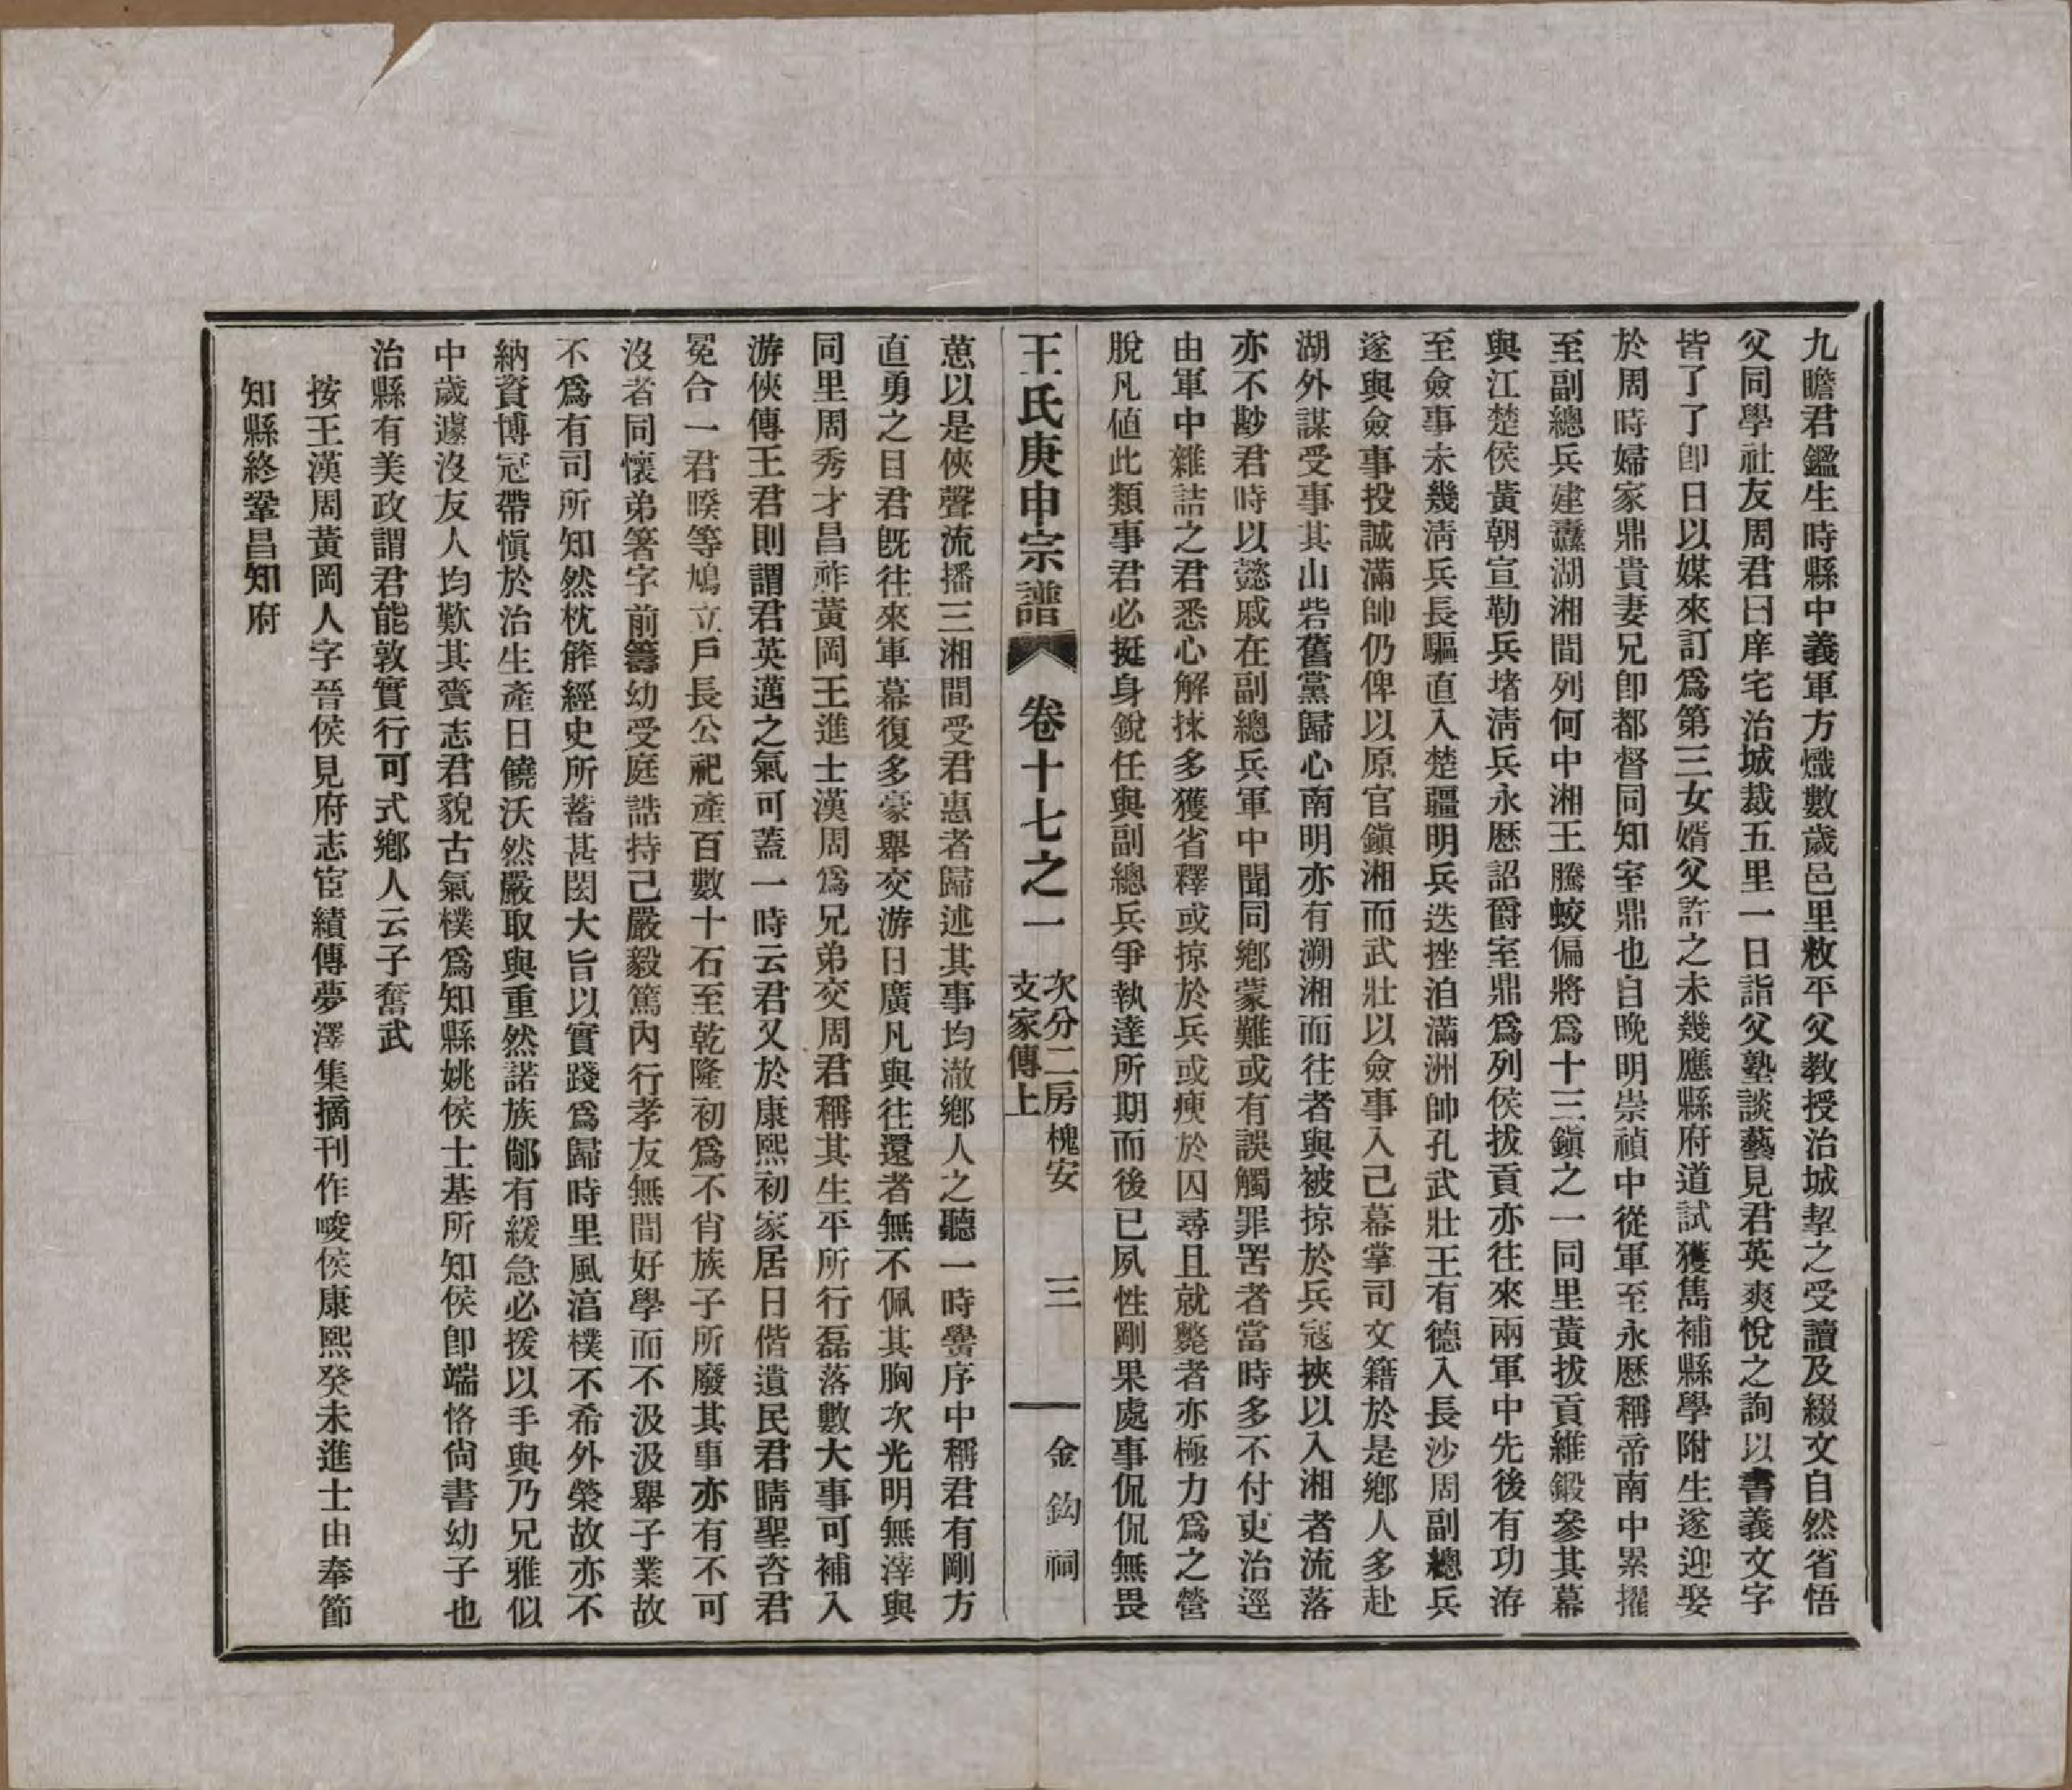 九瞻君鑑生時縣中義軍方熾數歲邑里敉平父教授治城挈之受讀及綴文自然省悟
父同學社友周君曰庠宅治城裁五里一日詣父塾談藝見君英爽悅之詢以書義文字
皆了了卽日以媒來訂爲第三女婿父許之未幾應縣府道試獲雋補縣學附生遂迎娶
於周時婦家鼎貴妻兄卽都督同知室鼎也自晚明崇禎中從軍至永歷稱帝南中累擢
至副總兵建纛湖湘間列何中湘王騰蛟偏將爲十三鎮之一同里黃拔貢維鍛參其幕
與江楚侯黃朝宣勒兵堵淸兵永歷詔爵室鼎爲列侯拔貢亦往來兩軍中先後有功洊
至僉事未幾淸兵長驅直入楚疆明兵迭挫洎滿洲帥孔武壯王有德入長沙周副總兵
遂與僉事投誠滿帥仍俾以原官鎭湘而武壯以僉事入己幕掌司文籍於是鄉人多赴
湖外謀受事其山砦舊黨歸心南明亦有溯湘而往者與被掠於兵寇挾以入湘者流落
亦不尠君時以懿戚在副總兵軍中聞同鄉蒙難或有誤觸罪罟者當時多不付吏治逕
由軍中雜詰之君悉心解捄多獲省釋或掠於兵或瘐於囚尋且就斃者亦極力爲之營
脫凡値此類事君必挺身銳任與副總兵爭執達所期而後已夙性剛果處事侃侃無畏
王氏庚申宗譜 卷十七之一 次分二房槐安支家傳上 三 金鈎祠
葸以是俠聲流播三湘間受君惠者歸述其事均澈鄉人之聽一時黌序中稱君有剛方
直勇之目君旣往來軍幕復多豪舉交游日廣凡與往還者無不佩其胸次光明無滓與
同里周秀才昌祚黃岡王進士漢周爲兄弟交周君稱其生平所行磊落數大事可補入
游俠傳王君則謂君英邁之氣可蓋一時云君又於康熙初家居日偕遺民君晴聖咨君
冕合一君暌等鳩立戶長公祀產百數十石至乾隆初爲不肖族子所廢其事亦有不可
沒者同懷弟箸字前籌幼受庭誥持己嚴毅篤內行孝友無間好學而不汲汲舉子業故
不爲有司所知然枕葄經史所蓄甚閎大旨以實踐爲歸時里風湻樸不希外榮故亦不
納資博冠帶愼於治生產日饒沃然嚴取與重然諾族鄰有緩急必援以手與乃兄雅似
中歲遽沒友人均歎其賷志君貌古氣樸爲知縣姚侯士基所知侯卽端恪尙書幼子也
治縣有美政謂君能敦實行可式鄉人云子奮武
按王漢周黃岡人字晉侯見府志宦績傳夢澤集摘刊作晙侯康熙癸未進士由奉節
知縣終鞏昌知府